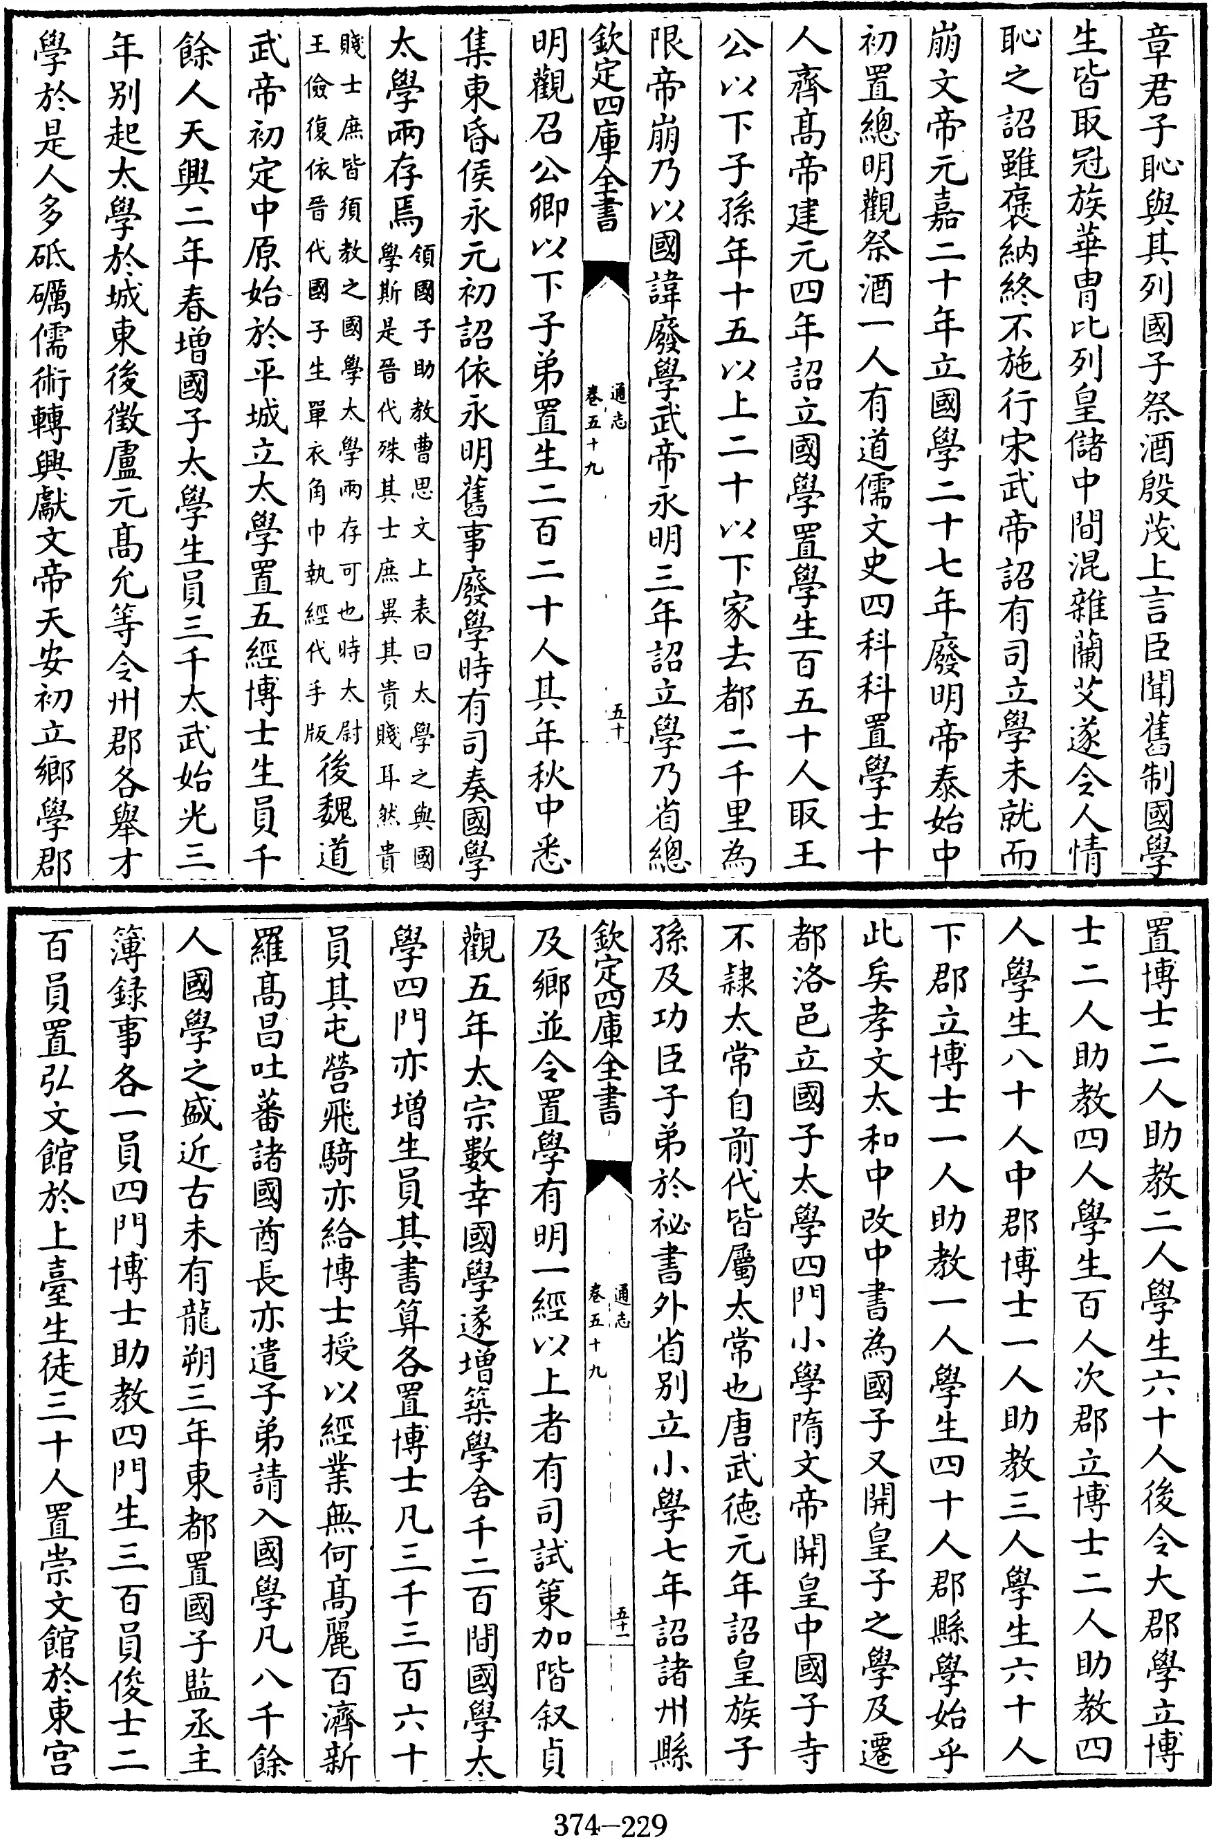 章君子恥與其列國子祭酒殷茂上言臣聞舊制國學
生皆取冠族華胄比列皇儲中間混雜蘭艾遂令人情
恥之詔雖褒納終不施行宋武帝詔有司立學未就而
崩文帝元嘉二十年立國學二十七年廢明帝泰始中
初置總明觀祭酒一人有道儒文史四科科置學士十
人齊髙帝建元四年詔立國學置學生百五十人取王
公以下子孫年十五以上二十以下家去都二千里為
限帝崩乃以國諱廢學武帝永明三年詔立學乃省總
欽定四庫全書
通志
卷五十九
五十
明觀召公卿以下子弟置生二百二十人其年秋中悉
集東昏侯永元初詔依永明舊事廢學時有司奏國學
太學兩存焉
領國子助教曹思文上表曰太學之與國
學斯是晉代殊其士庶異其貴賤耳然貴
賤士庶皆須教之國學太學兩存可也時太尉
王儉復依晉代國子生單衣角巾執經代手版
後魏道
武帝初定中原始於平城立太學置五經博士生員千
餘人天興二年春增國子太學生員三千太武始光三
年別起太學於城東後徵盧元髙允等令州郡各舉才
學於是人多砥礪儒術轉興獻文帝天安初立鄉學郡
置博士二人助教二人學生六十人後令大郡學立博
士二人助教四人學生百人次郡立博士二人助教四
人學生八十人中郡博士一人助教三人學生六十人
下郡立博士一人助教一人學生四十人郡縣學始乎
此矣孝文太和中改中書為國子又開皇子之學及遷
都洛邑立國子太學四門小學隋文帝開皇中國子寺
不隷太常自前代皆屬太常也唐武德元年詔皇族子
孫及功臣子弟於祕書外省別立小學七年詔諸州縣
欽定四庫全書
通志
卷五十九
五十一
及鄉並令置學有明一經以上者有司試策加階叙貞
觀五年太宗數幸國學遂增築學舍千二百間國學太
學四門亦增生員其書算各置博士凡三千三百六十
員其屯營飛騎亦給博士授以經業無何髙麗百濟新
羅髙昌吐蕃諸國酋長亦遣子弟請入國學凡八千餘
人國學之盛近古未有龍朔三年東都置國子監丞主
簿録事各一員四門博士助教四門生三百員俊士二
百員置弘文館於上臺生徒三十人置崇文館於東宮
374-229